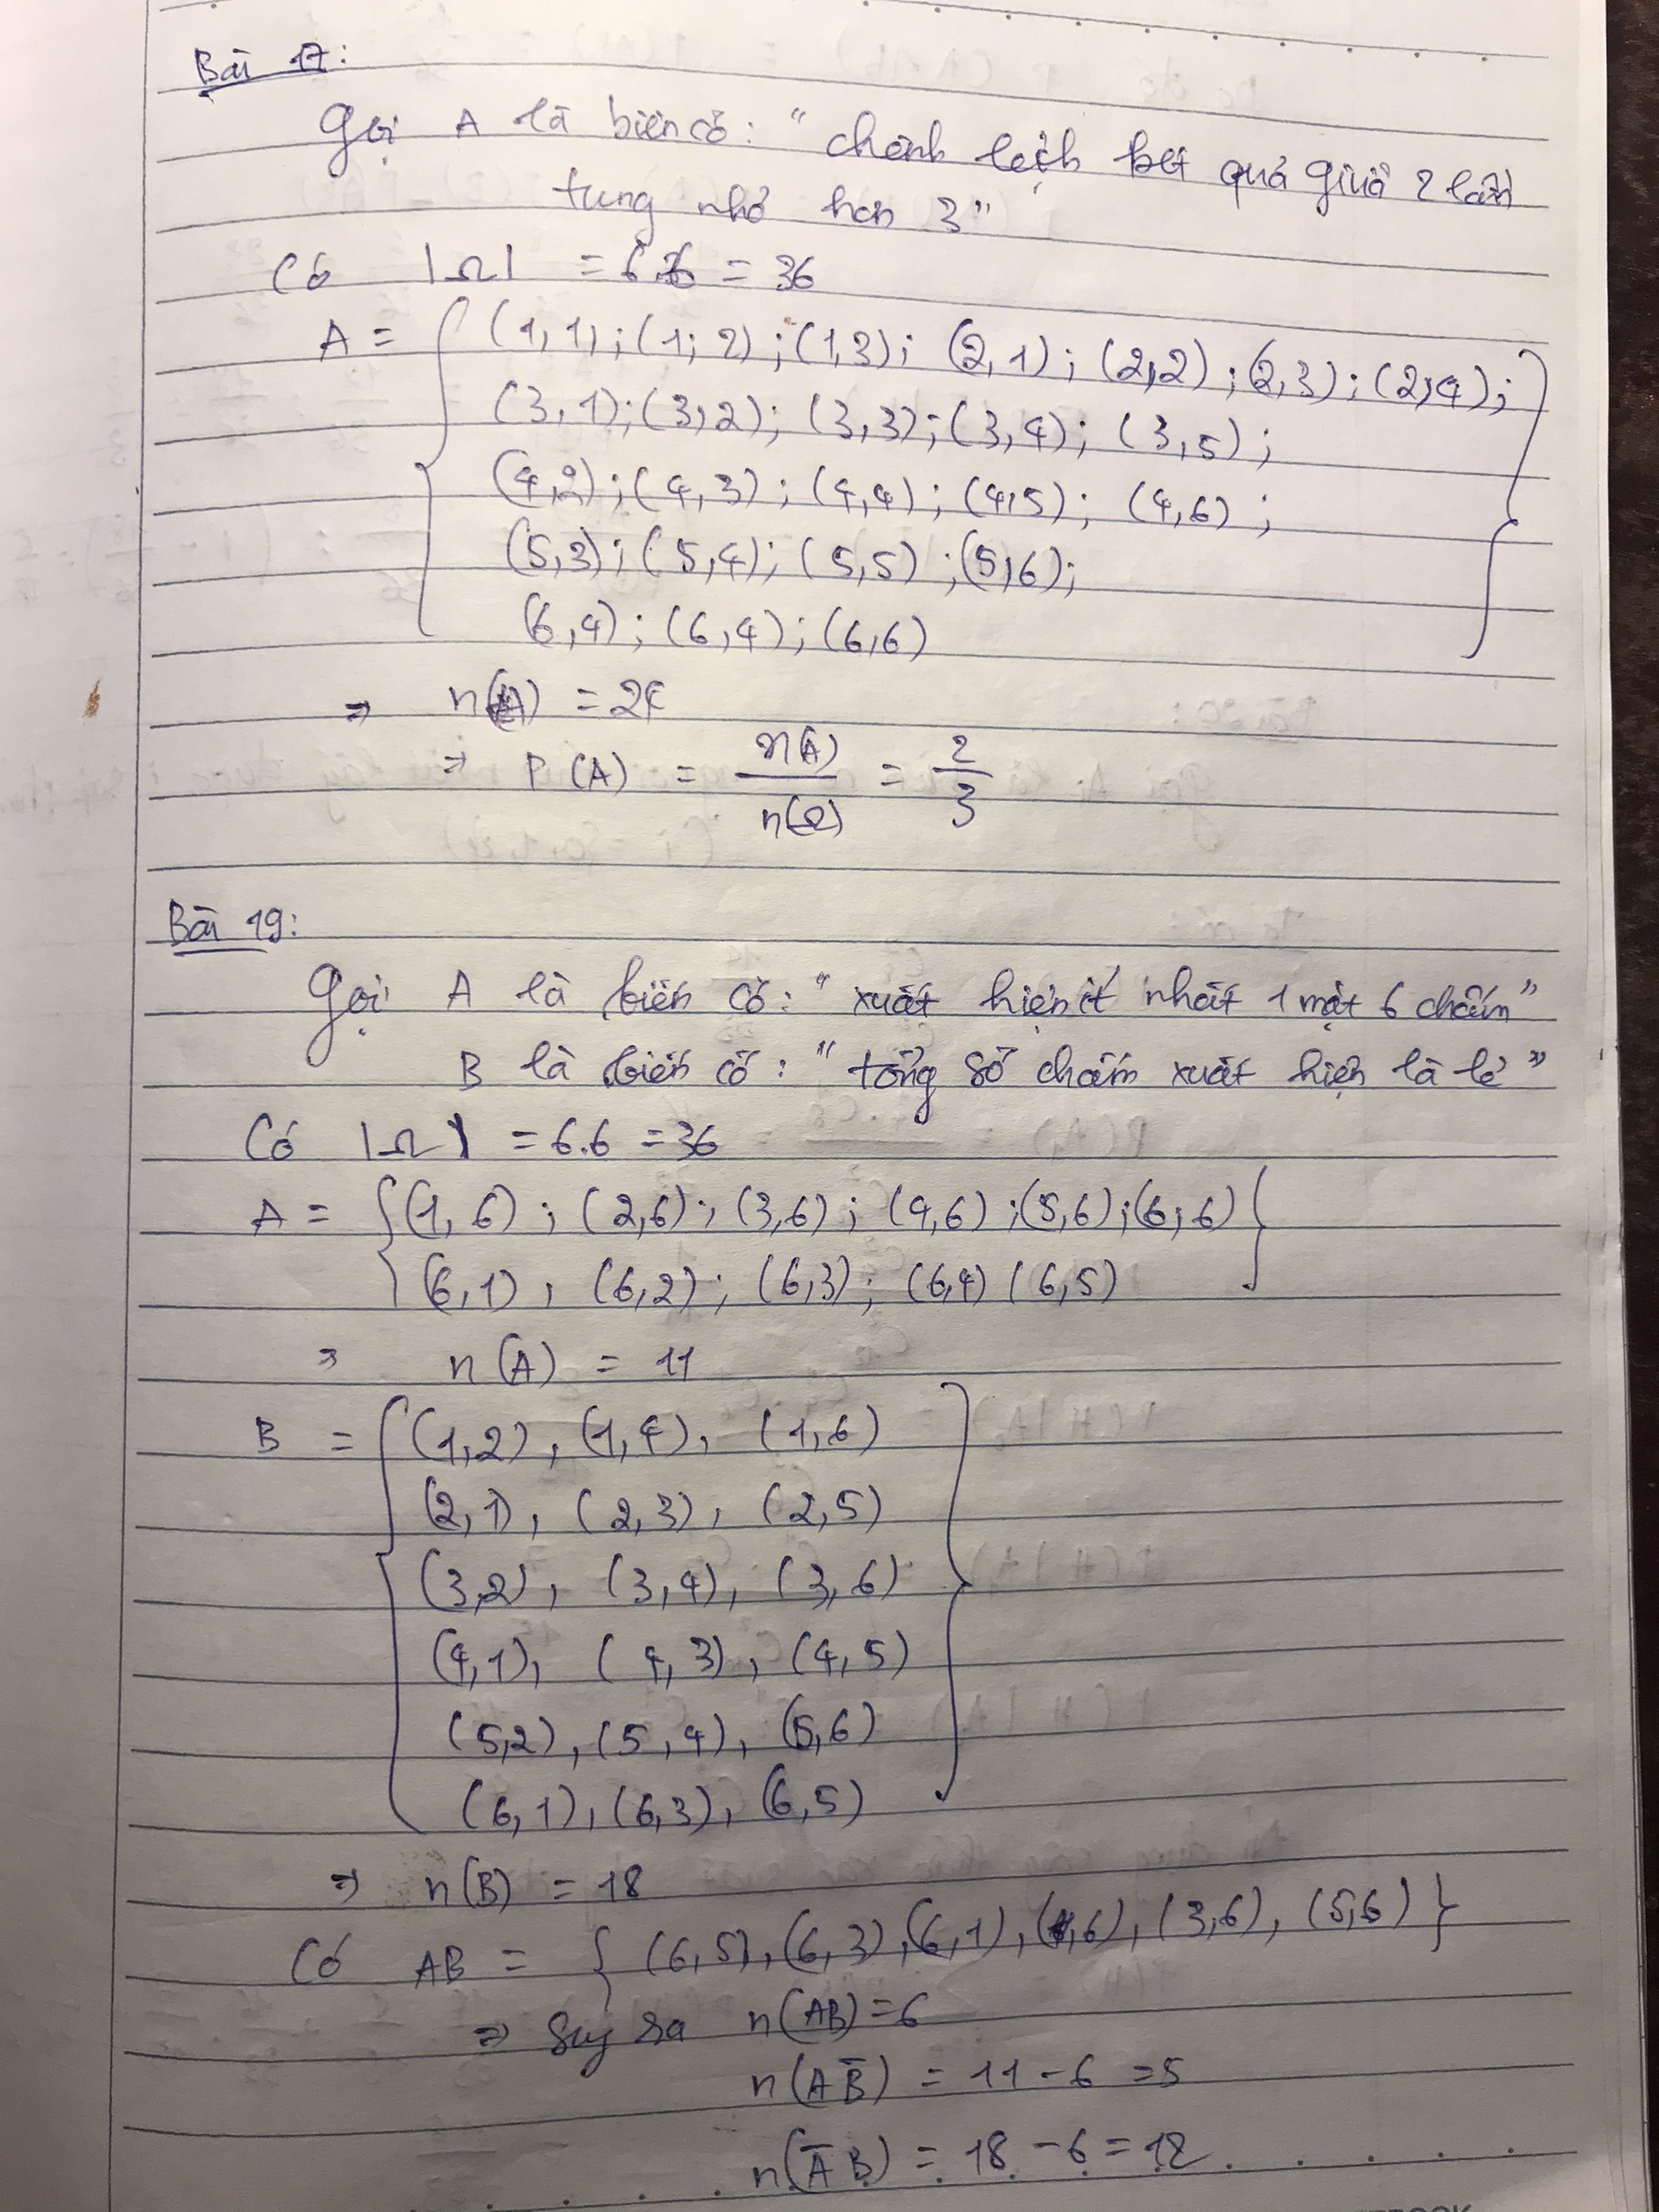 Bài 17:
Gọi A là biến cố: "chênh lệch kết quả giữa 2 lần
tung nhỏ hơn 3"
Có |Ω| = 6.6 = 36
A = { (1,1); (1;2); (1,3); (2,1); (2,2); (2,3); (2,4);
(3,1); (3,2); (3,3); (3,4); (3,5);
(4,2); (4,3); (4,4); (4,5); (4,6);
(5,3); (5,4); (5,5); (5,6);
(6,4); (6,4); (6,6) }
⇒ n(A) = 24
⇒ P(A) = n(A)/n(Ω) = 2/3
Bài 19:
Gọi A là biến cố: "xuất hiện ít nhất 1 mặt 6 chấm"
B là biến cố: "tổng số chấm xuất hiện là lẻ"
Có |Ω| = 6.6 = 36
A = { (1,6); (2,6); (3,6); (4,6); (5,6); (6;6)
(6,1), (6,2); (6,3); (6,4) (6,5) }
⇒ n(A) = 11
B = { (1,2), (1,4), (1,6)
(2,1), (2,3), (2,5)
(3,2), (3,4), (3,6)
(4,1), (4,3), (4,5)
(5,2), (5,4), (5,6)
(6,1), (6,3), (6,5) }
⇒ n(B) = 18
Có AB = { (6,5), (6,3), (6,1), (1,6), (3,6), (5,6) }
⇒ Suy ra n(AB) = 6
n(AB̅) = 11 - 6 = 5
n(A̅B) = 18 - 6 = 12